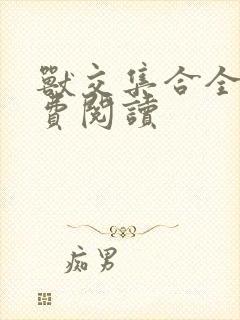 獸交集合全
費閱讀
痴男